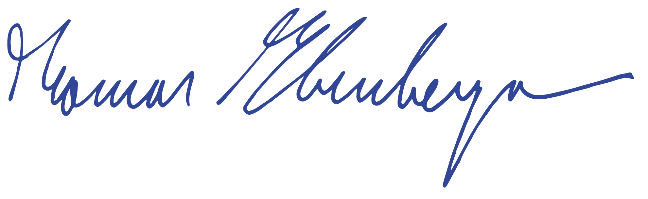 Thomas Ebenberger